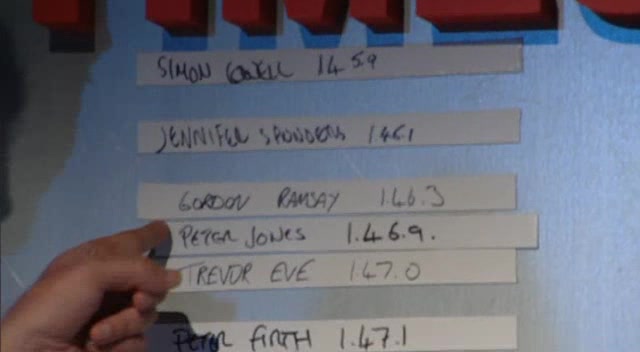 SIMON COWELL 1.45.9
JENNIFER SAUNDERS 1.46.1
GORDON RAMSAY 1.46.3
PETER JONES 1.46.9.
TREVOR EVE 1.47.0
PETER FIRTH 1.47.1